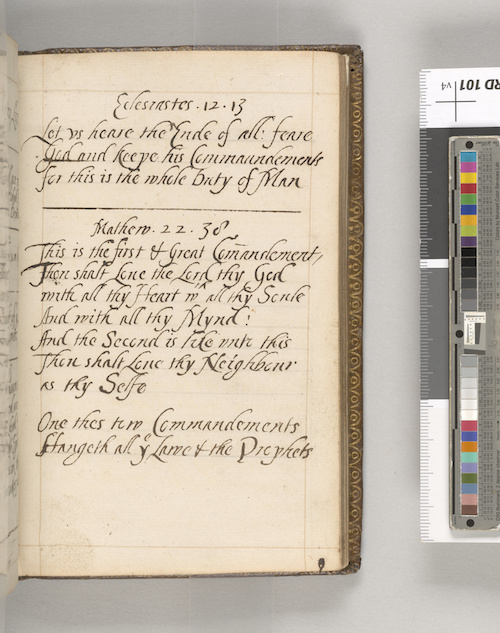 Eclesiastes . 12 . 13
Let vs heare the Ende of all: feare
God and keepe his Commaundements
for this is the whole Duty of Man
Mathew . 22 . 38
This is the first & Great Comandement,
Thou shalt Loue the Lord thy God
with all thy Heart wth all thy Soule
And with all thy Mynd:
And the Second is like vnto this
Thou shalt Loue thy Neighbour
as thy Selfe
One thes tuw Commandements
Hangeth all ye Lawe & the Prophets
RD 101
v4